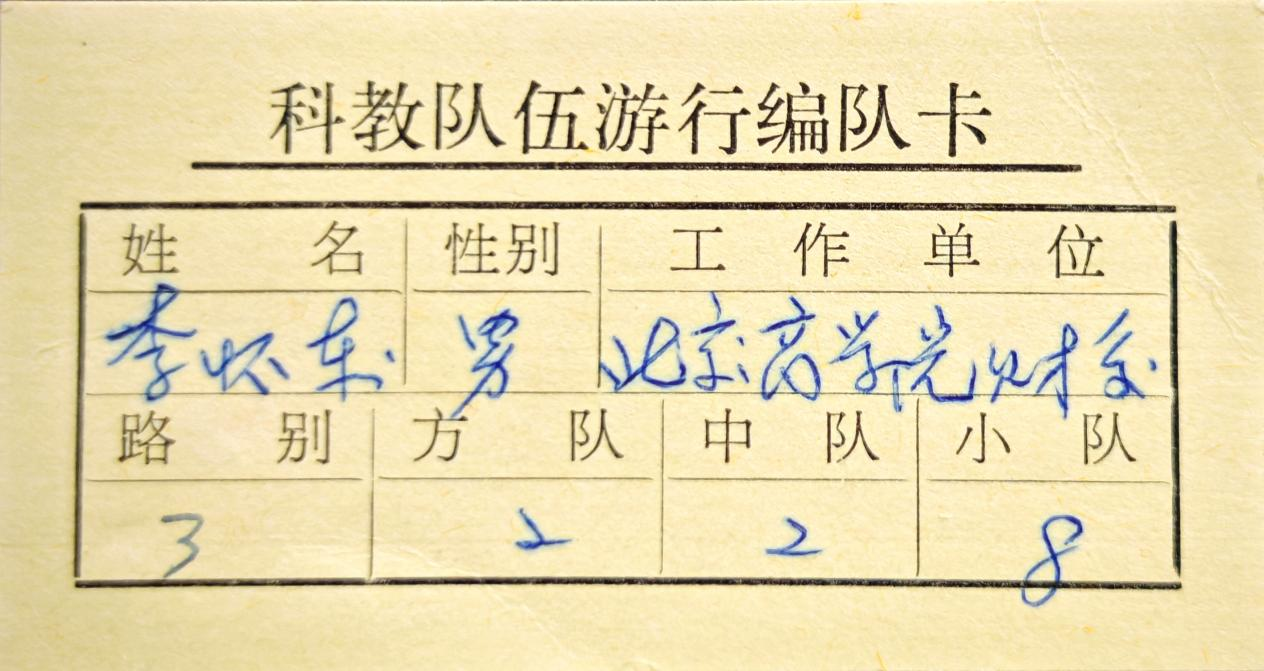 科教队伍游行编队卡
姓名 性别 工作单位
李怀东 男 北京商学院财会
路别 方队 中队 小队
3 2 2 8